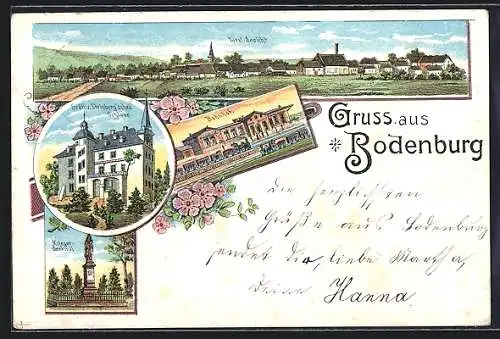 Total-Ansicht
Gräfl. v. Steinberg'sches
Schloss
Bahnhof
Krieger-
denkmal
Gruss aus
Bodenburg
Die herzlichsten
Grüße aus Bodenburg
sendet dir, liebe Martha,
Deine Hanna